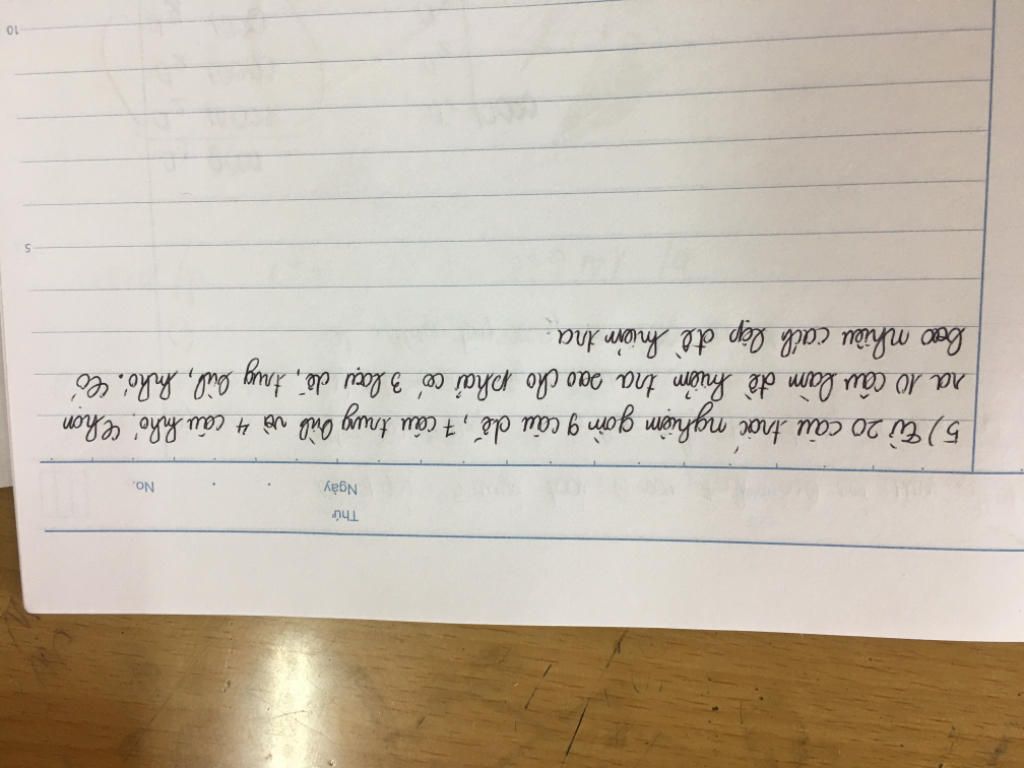 Thứ
Ngày No.
5) Từ 20 câu trắc nghiệm gồm 9 câu dễ, 7 câu trung bình và 4 câu khó. Chọn
ra 10 câu làm đề kiểm tra sao cho phải có 3 loại dễ, trung bình, khó. Có
bao nhiêu cách lập đề kiểm tra
5
10